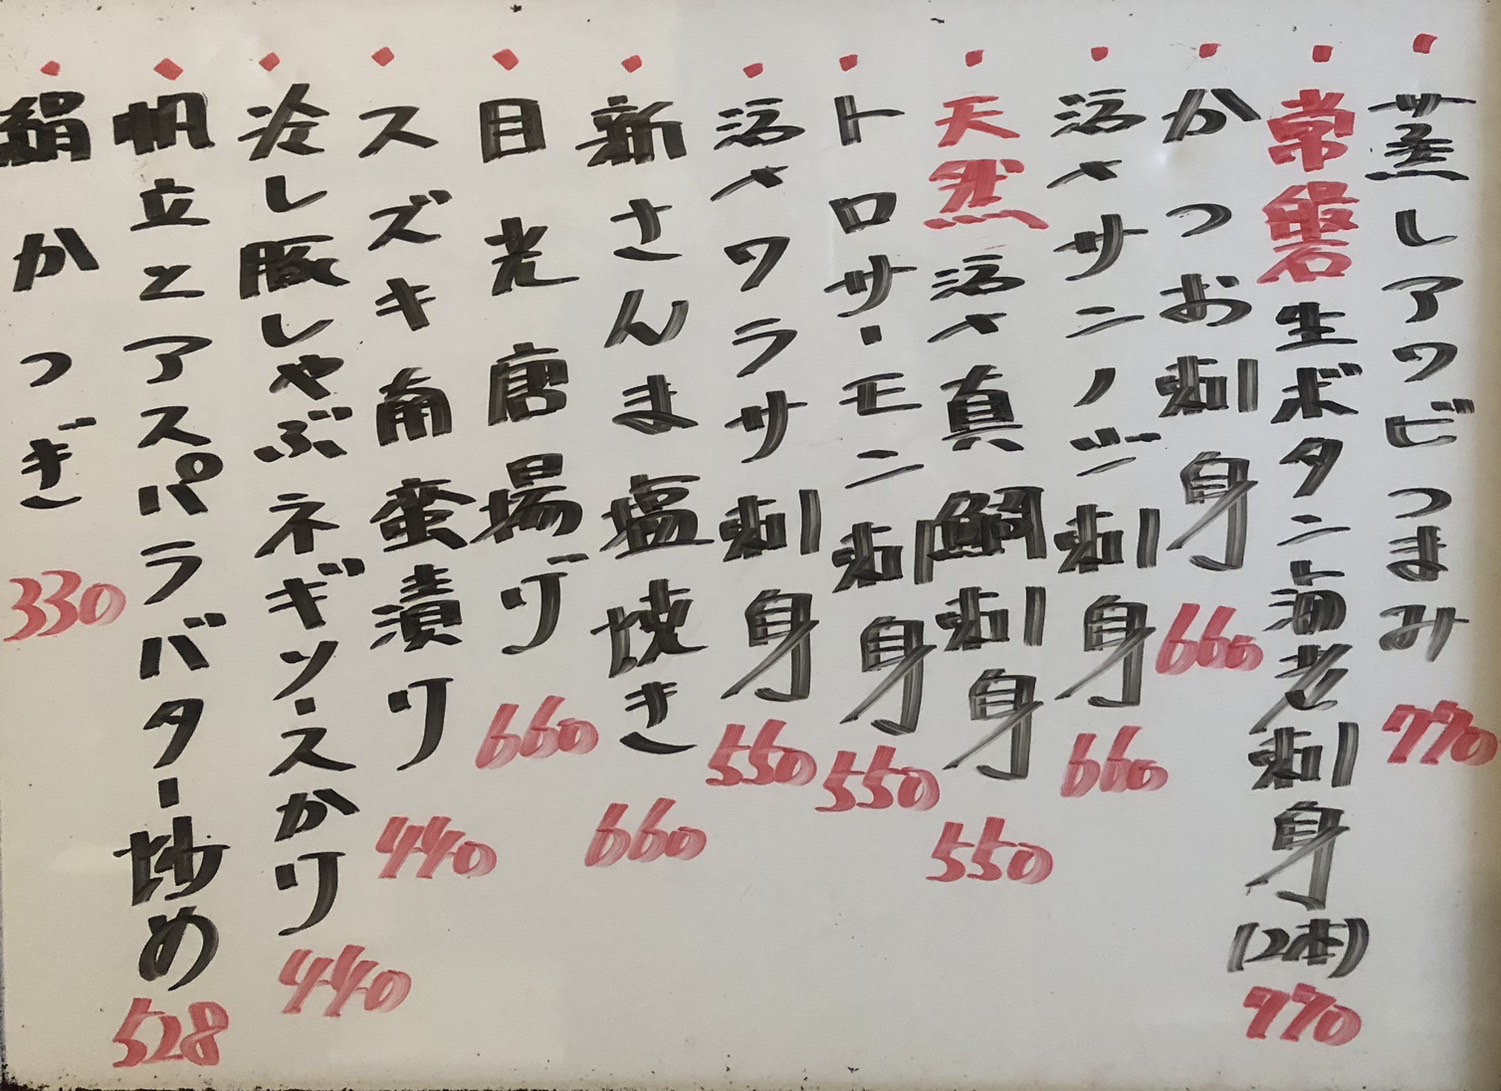 ・蒸しアワビつまみ 770
・常磐生ボタン海老刺身(2本) 770
・かつお刺身 660
・活〆サンノジ刺身 660
・天然活〆真鯛刺身 550
・トロサーモン刺身 550
・活〆ワラサ刺身 550
・新さんま塩焼き 660
・目光唐揚げ 660
・スズキ南蛮漬け 440
・冷し豚しゃぶネギソースかけ 440
・帆立とアスパラバター炒め 528
・絹かつぎ 330